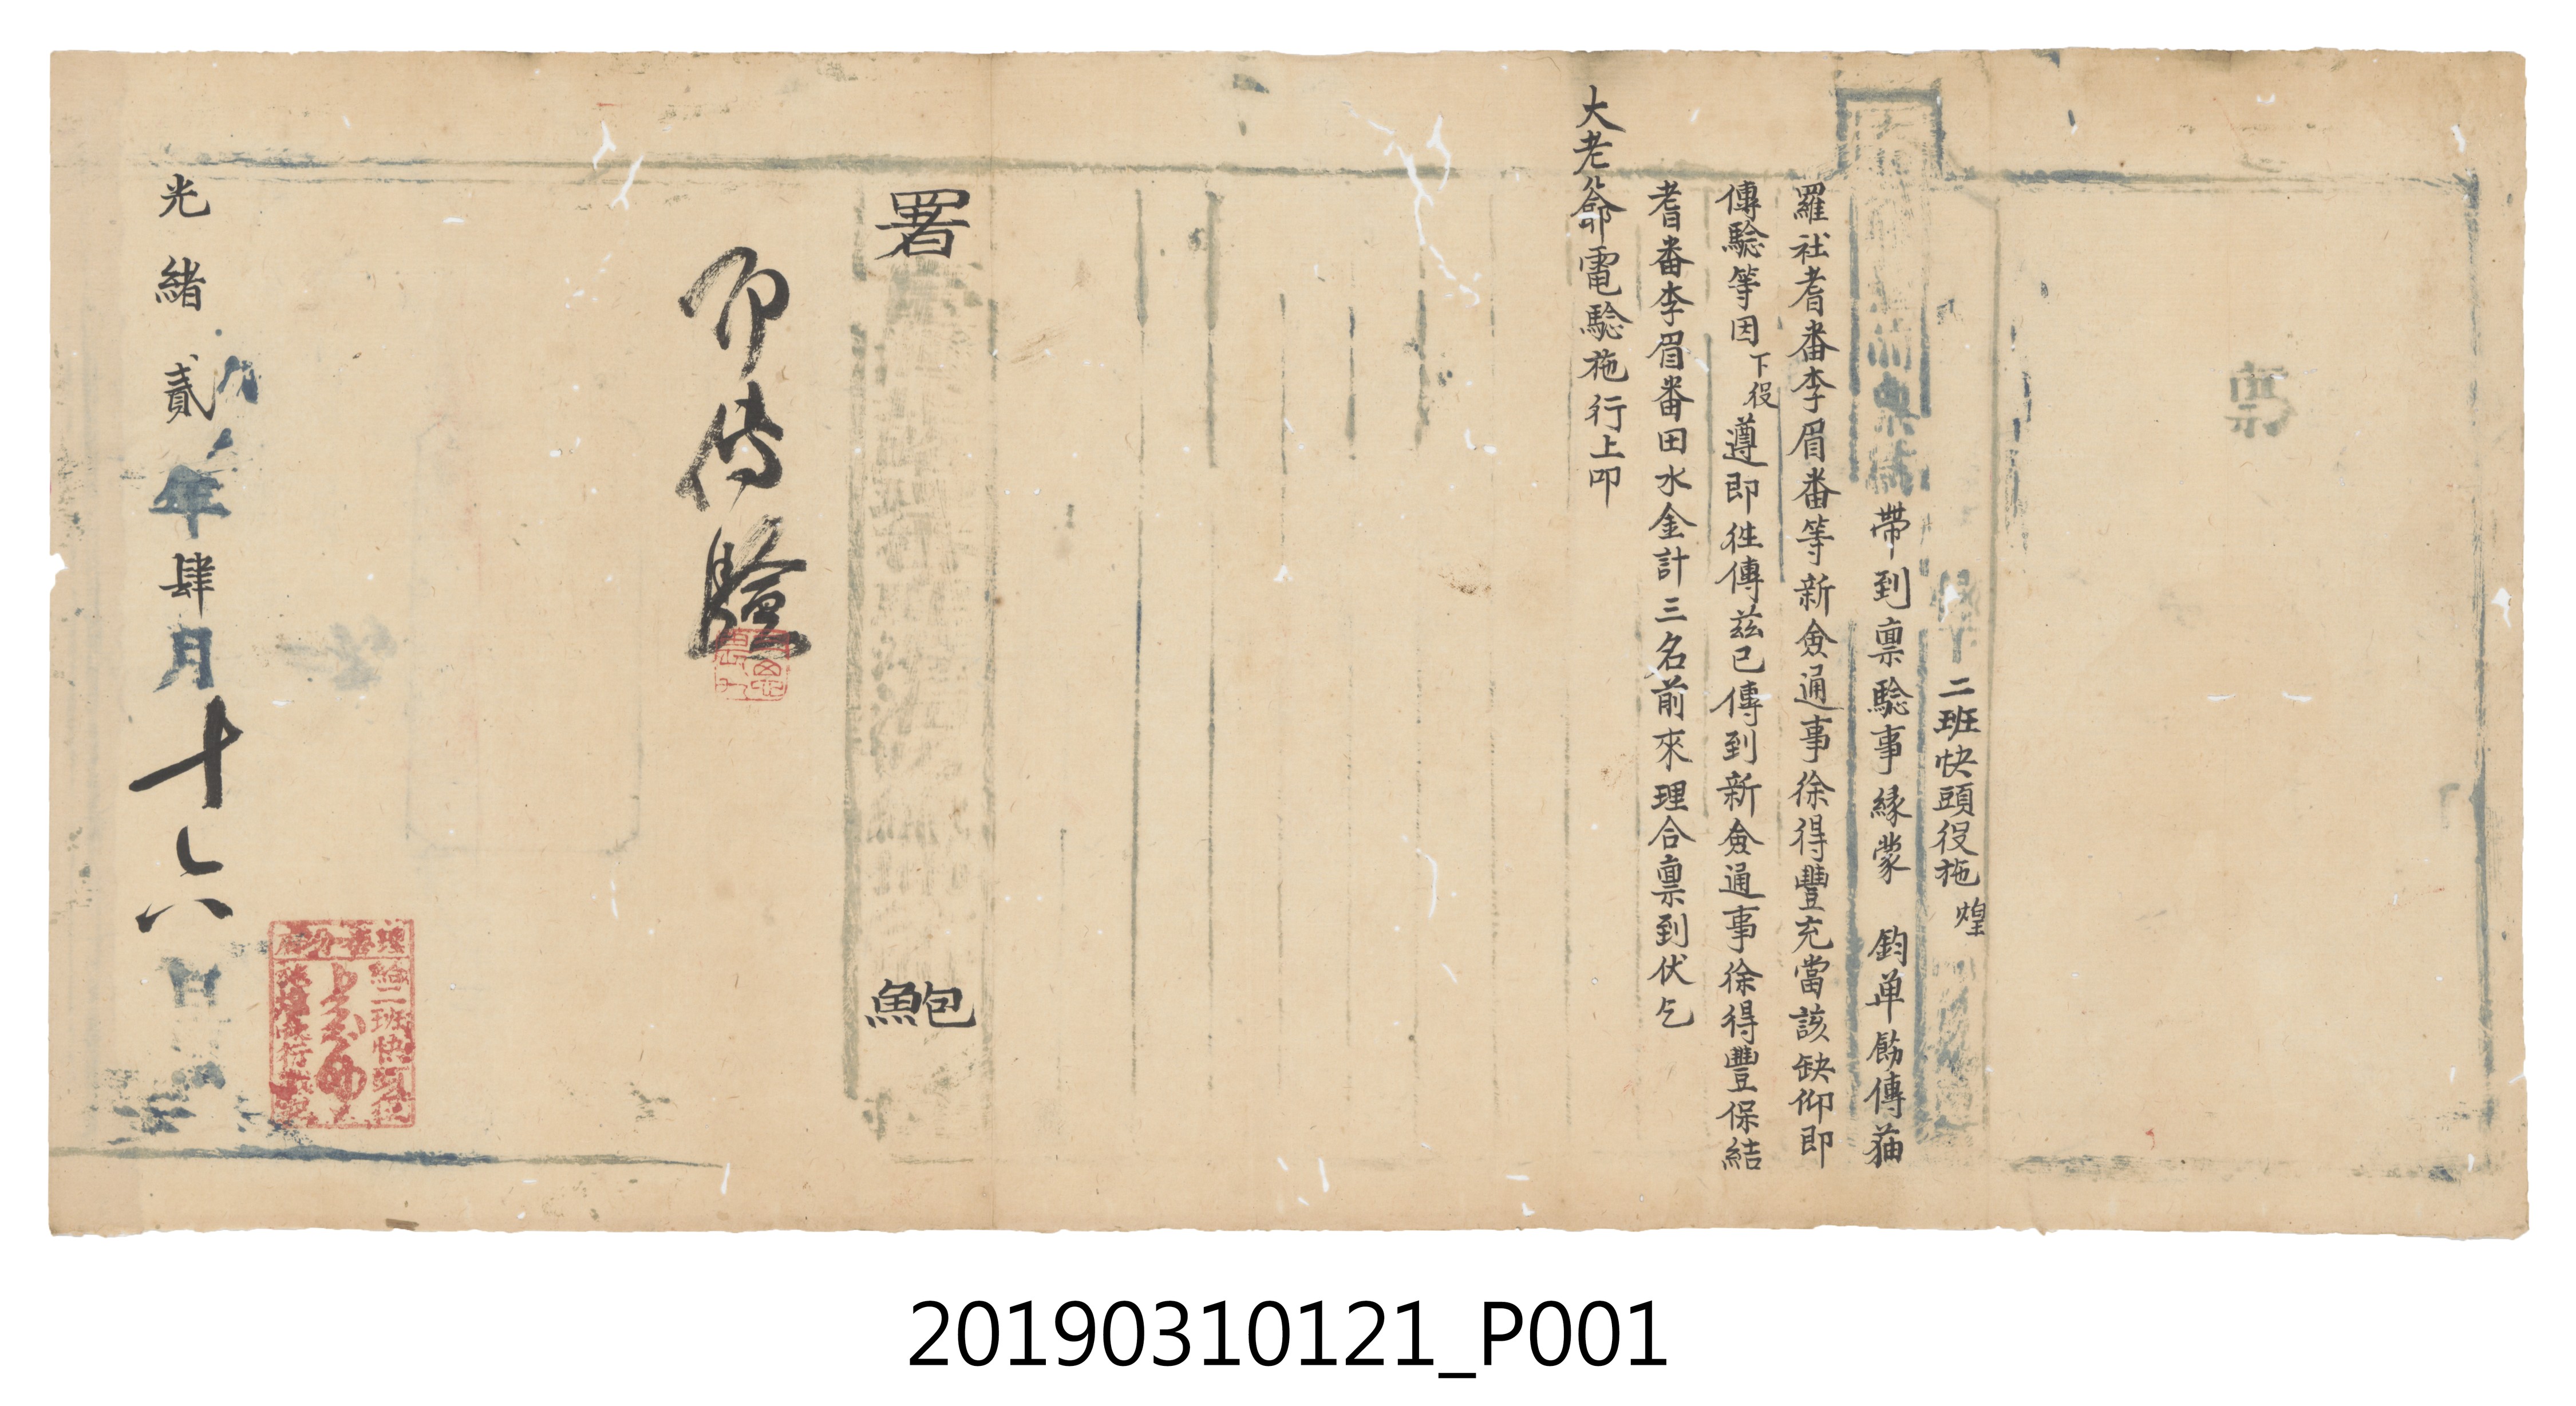 稟
二班快頭役施煌
帶到稟騐事緣蒙　鈞單飭傳猫
羅社耆番李眉番等新僉通事徐得豐充當該缺仰即
傳騐等因下役遵即徃傳茲已傳到新僉通事徐得豐保結
耆番李眉番田水金計三名前來理合稟到伏乞
大老爺電騐施行上叩
署
鮑
即傳驗
給二班快頭役
光緒貳年肆月十六日
20190310121_P001